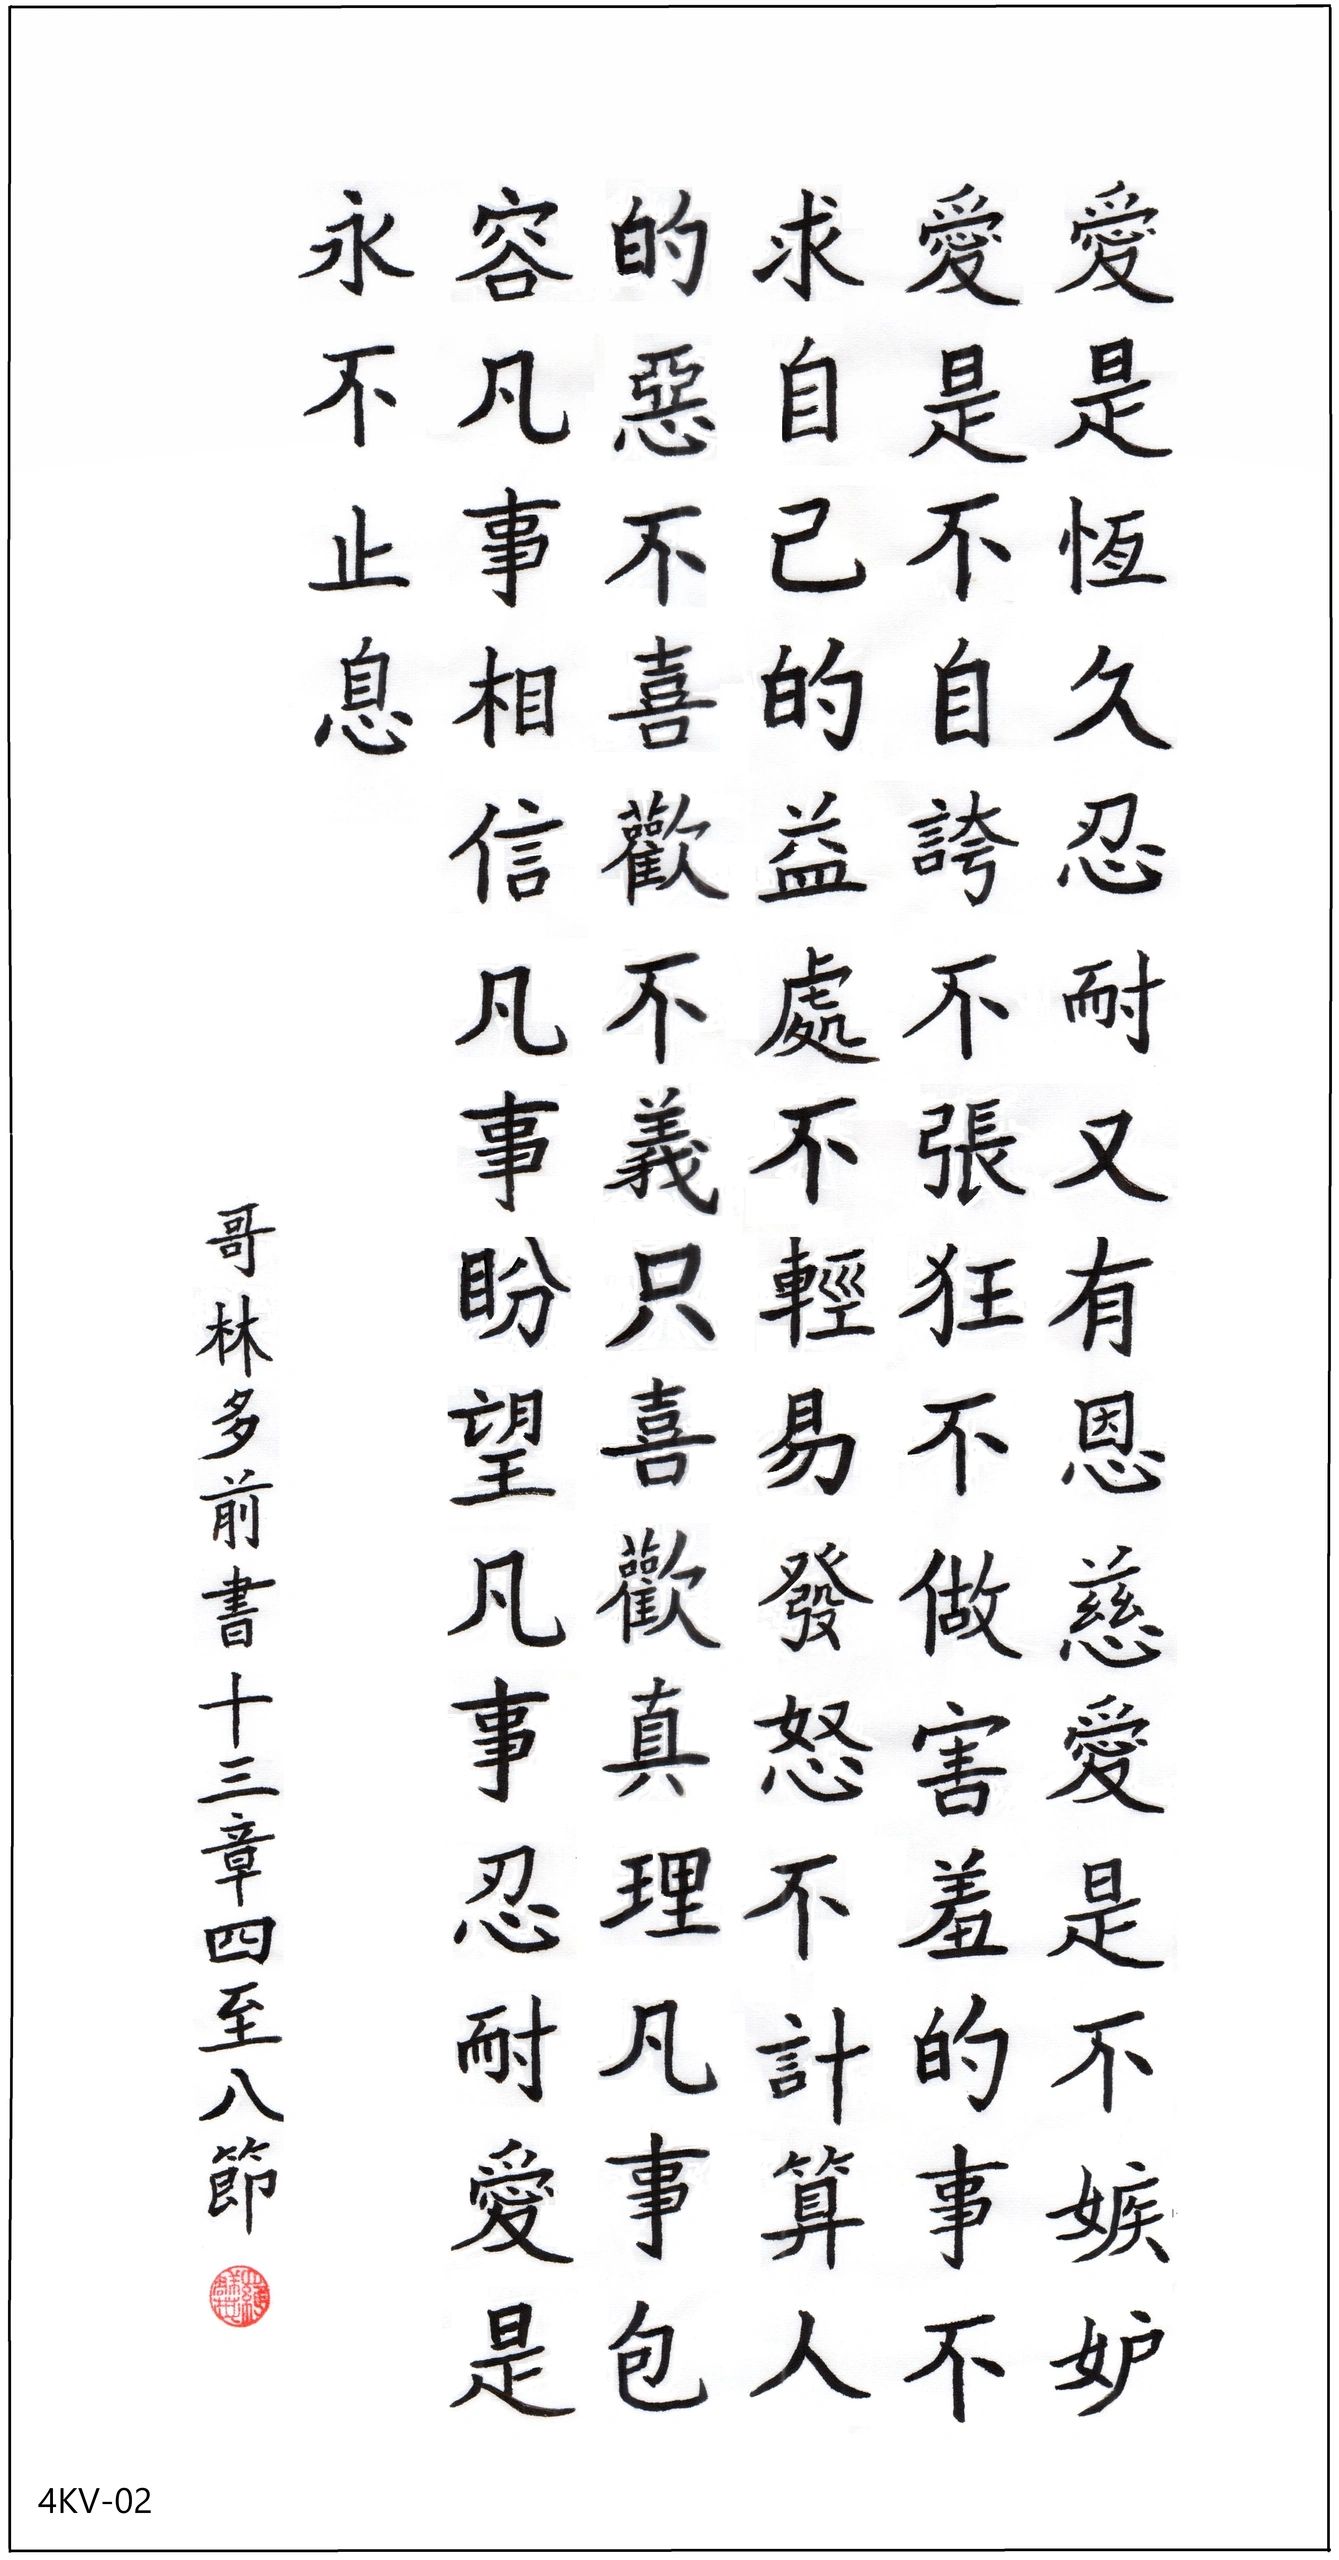 愛是恆久忍耐又有恩慈愛是不嫉妒
愛是不自誇不張狂不做害羞的事不
求自己的益處不輕易發怒不計算人
的惡不喜歡不義只喜歡真理凡事包
容凡事相信凡事盼望凡事忍耐愛是
永不止息
哥林多前書十三章四至八節
4KV-02